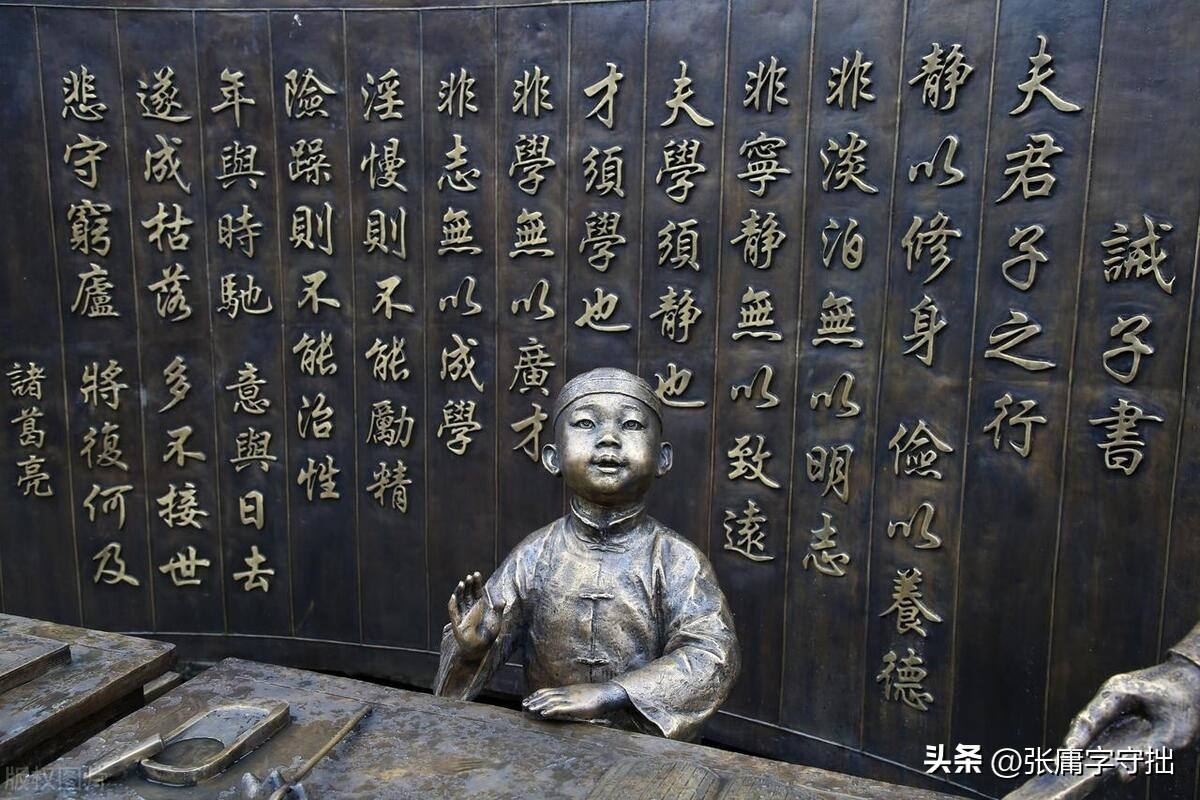 誡子書
夫君子之行
静以修身 儉以養德
非淡泊無以明志
非寧静無以致遠
夫學須静也
才須學也
非學無以廣才
非志無以成學
淫慢則不能勵精
險躁則不能治性
年與時馳 意與日去
遂成枯落 多不接世
悲守窮廬 將復何及
諸葛亮
头条 @张庸字守拙
版权图库